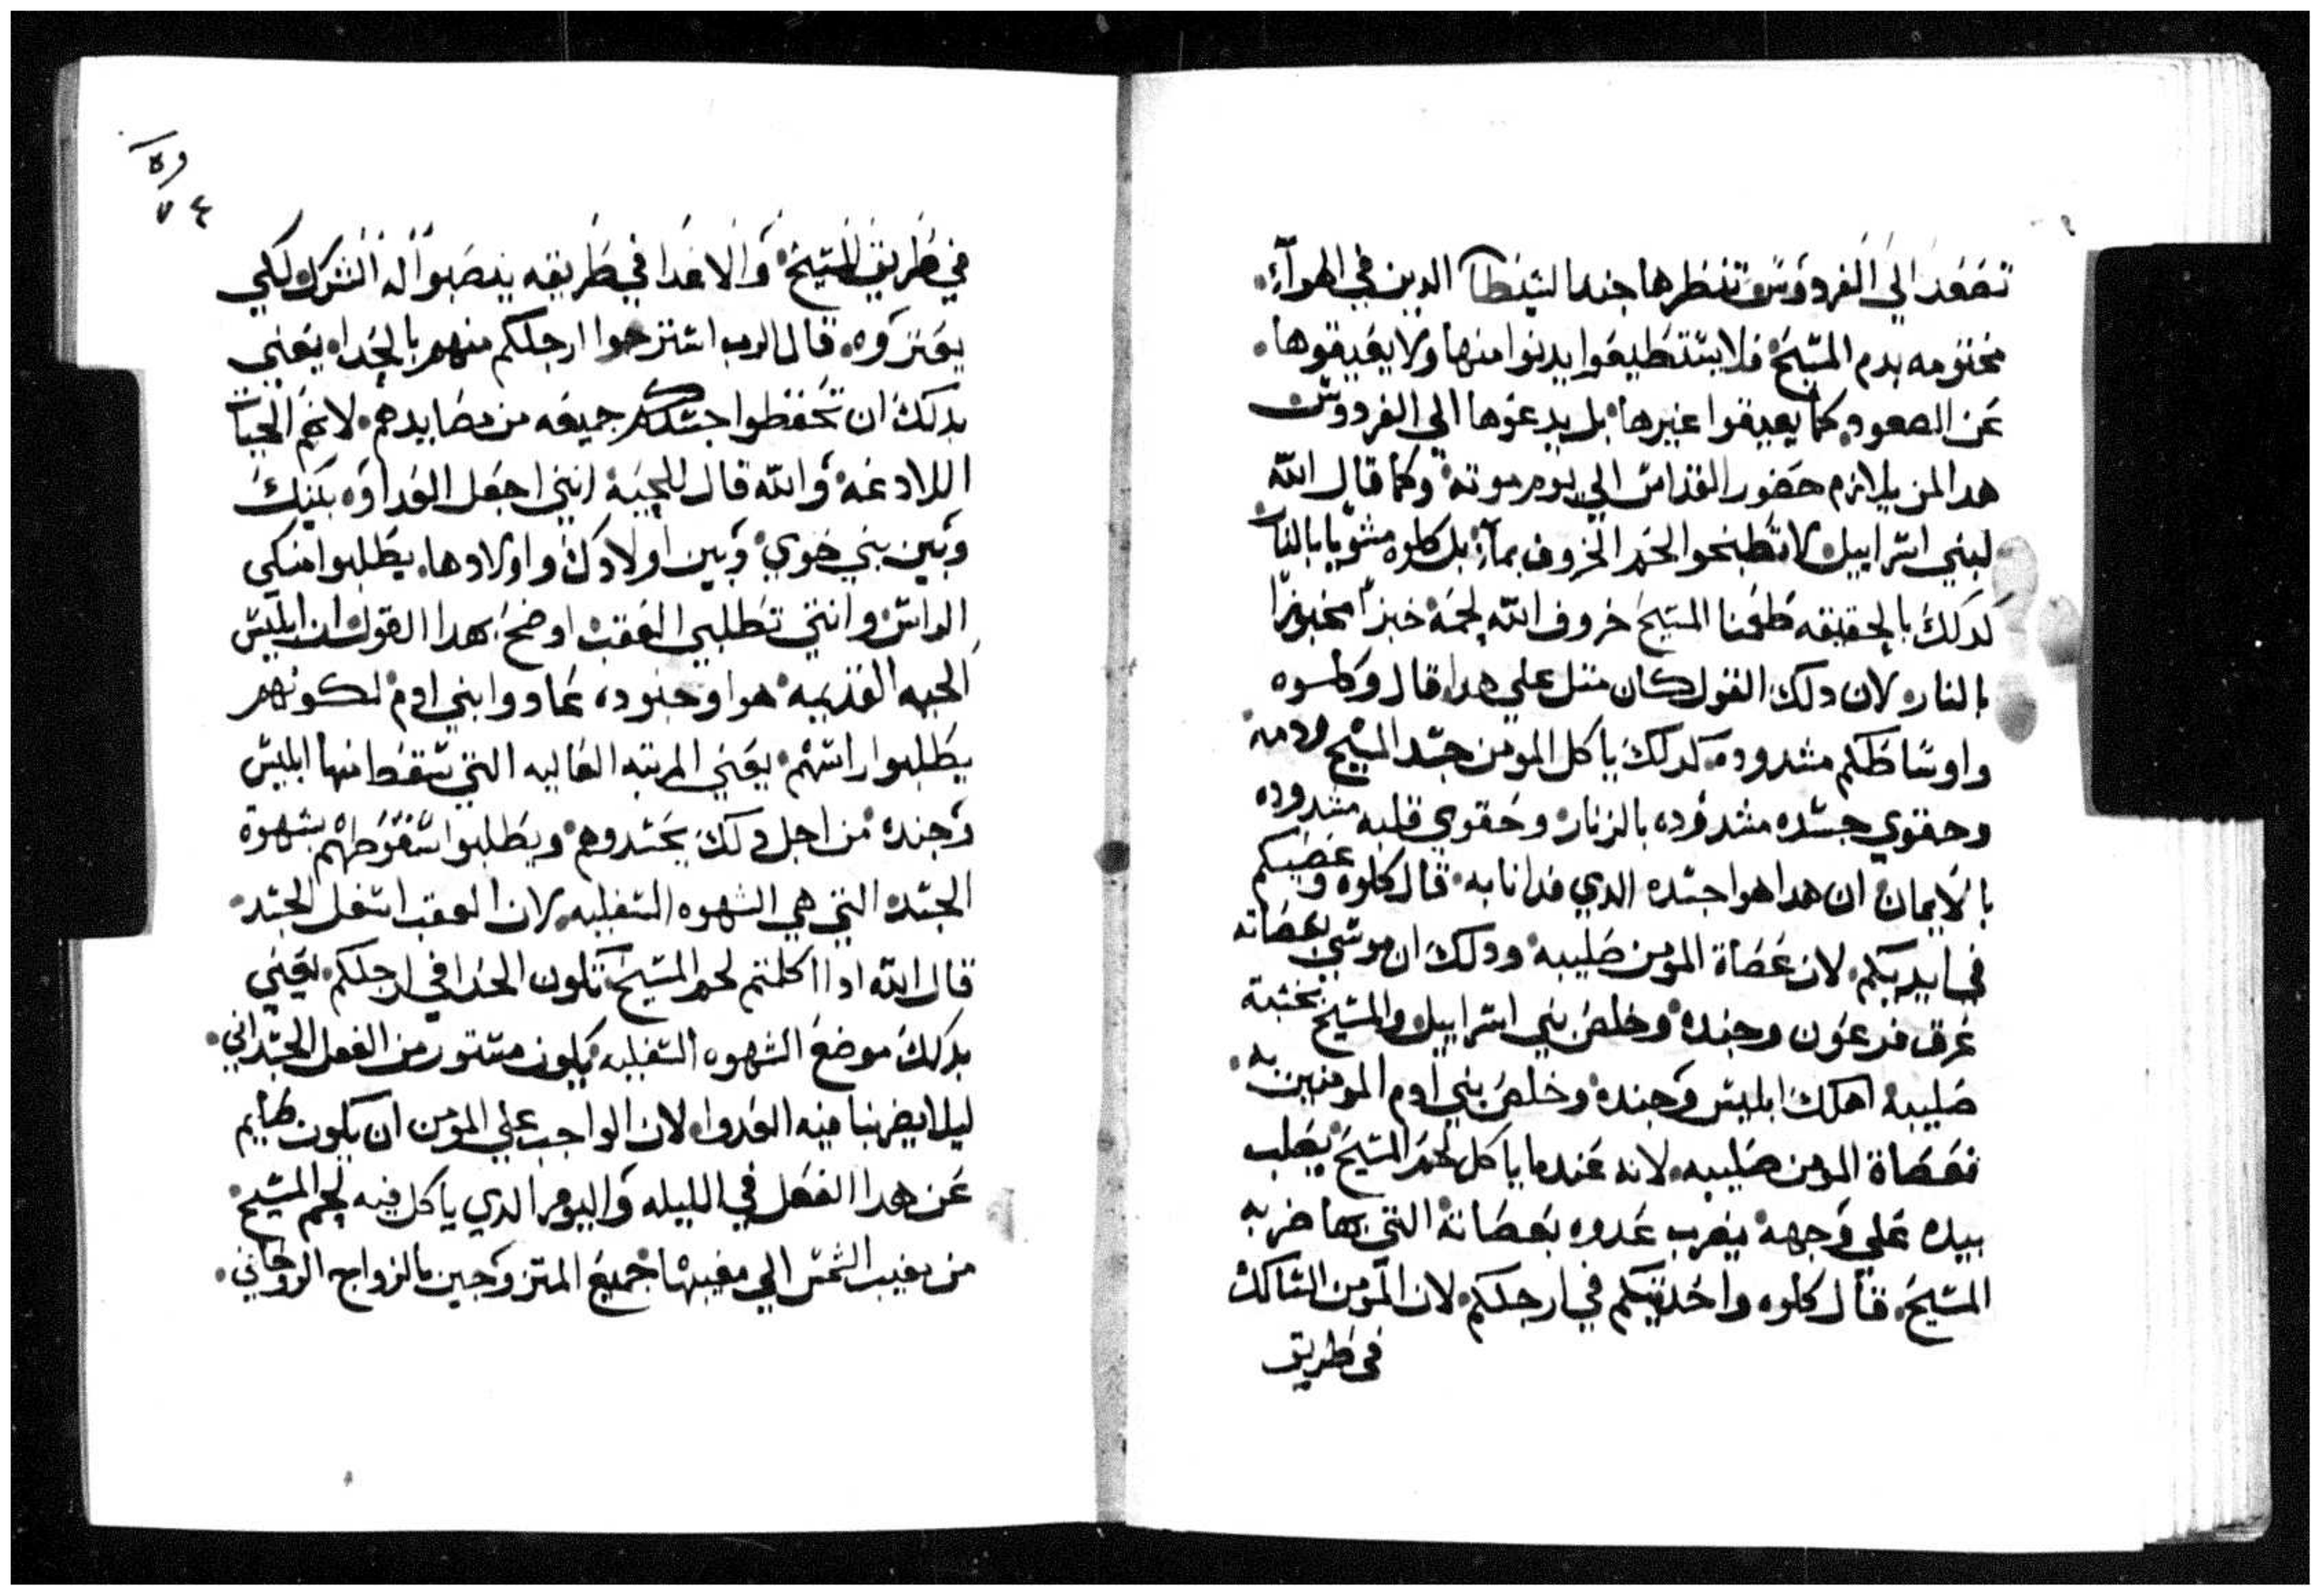 تصعد الي الفردوس تنظرها جند الشيطان الدين في الهوآء.
مختومه بدم المسيح فلا يستطيعوا يدنوا منها ولا يعيقوها.
عن الصعود. كما يعيقوا غيرها بل يدعوها الي الفردوس
هدا لمن يلازم حضور القداس الي يوم موته وكما قال الله
لبني اسراييل لا تطبخوا لحم الخروف بمآء بل كلوه مشويا بالنار
كدلك بالحقيقه طعمنا المسيح خروف الله لحمه خبزاً مخبوزاً
بالنار لان دلك القول كان متل علي هدا. قال وكلوه
واوساطكم مشدوده. كدلك ياكل المومن جسد المسيح ودمه
وحقوي جسده مشدوده بالزنار وحقوي قلبه مشدوده
بالايمان ان هدا هوا جسده الدي فدانا به. قال كلوه وعصيكم
في ايديكم. لان عصاة المومن صليبه ودلك ان موسي بعصاته
غرق فرعون وجنده وخلص بني اسراييل والمسيح بخشبة
صليبه اهلك ابليس وجنده وخلص بني ادم المومنين به.
فعصاة المومن صليبه. لانه عندما ياكل لحم المسيح يصلب
بيده علي وجهه يضرب عدوه بعصاته التي بها ضربه
المسيح. قال كلوه واحديتكم في ارجلكم. لان المومن السالك
في طريق
١٥٩
٧٤
في طريق المسيح والاعدا في طريقه ينصبوا له الشرك لكي
يعتروه. قال الرب استنزحوا ارجلكم منهم بالحدا. يعني
بدلك ان تحفظوا جسدكم جميعه من مصايدهم. لانهم الحيات
اللادغه والله قال للحيه انني اجعل العداوه بينك
وبين بني حوي وبين اولادك واولادها. يطلبوا منكي
الراس وانتي تطلبي العقب اوضح بهدا القول ان ابليس
الحيه القديمه هوا وجنوده عادوا بني ادم لكونهم
يطلبوا راسهم يعني المرتبه العاليه التي سقط منها ابليس
وجنده من اجل دلك يحسدوهم ويطلبوا سقوطهم بشهوة
الجسد التي هي الشهوه السفليه. لان العقب اسفل الجسد.
قال الله ادا اكلتم لحم المسيح تكون الحدا في ارجلكم. يعني
بدلك موضع الشهوه السفليه يكون مستور من الفعل الجسداني.
ليلا يضربنا فيه العدوا. لان الواجب علي المومن ان يكون صايم
عن هدا الفعل في الليله واليوم الدي ياكل فيه لحم المسيح.
من مغيب الشمس الي مغيبها جميع المتزوجين بالزواج الروحاني.